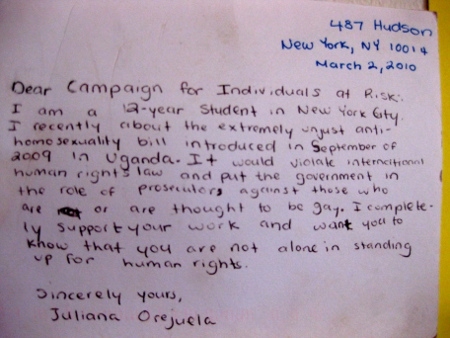 487 Hudson
New York, NY 10014
March 2, 2010
Dear Campaign for Individuals at Risk:
I am a 12-year student in New York City.
I recently about the extremely unjust anti-
homosexuality bill introduced in September of
2009 in Uganda. It would violate international
human rights law and put the government in
the role of prosecutors against those who
are or are thought to be gay. I complete-
ly support your work and want you to
know that you are not alone in standing
up for human rights.
Sincerely yours,
Juliana Orejuela